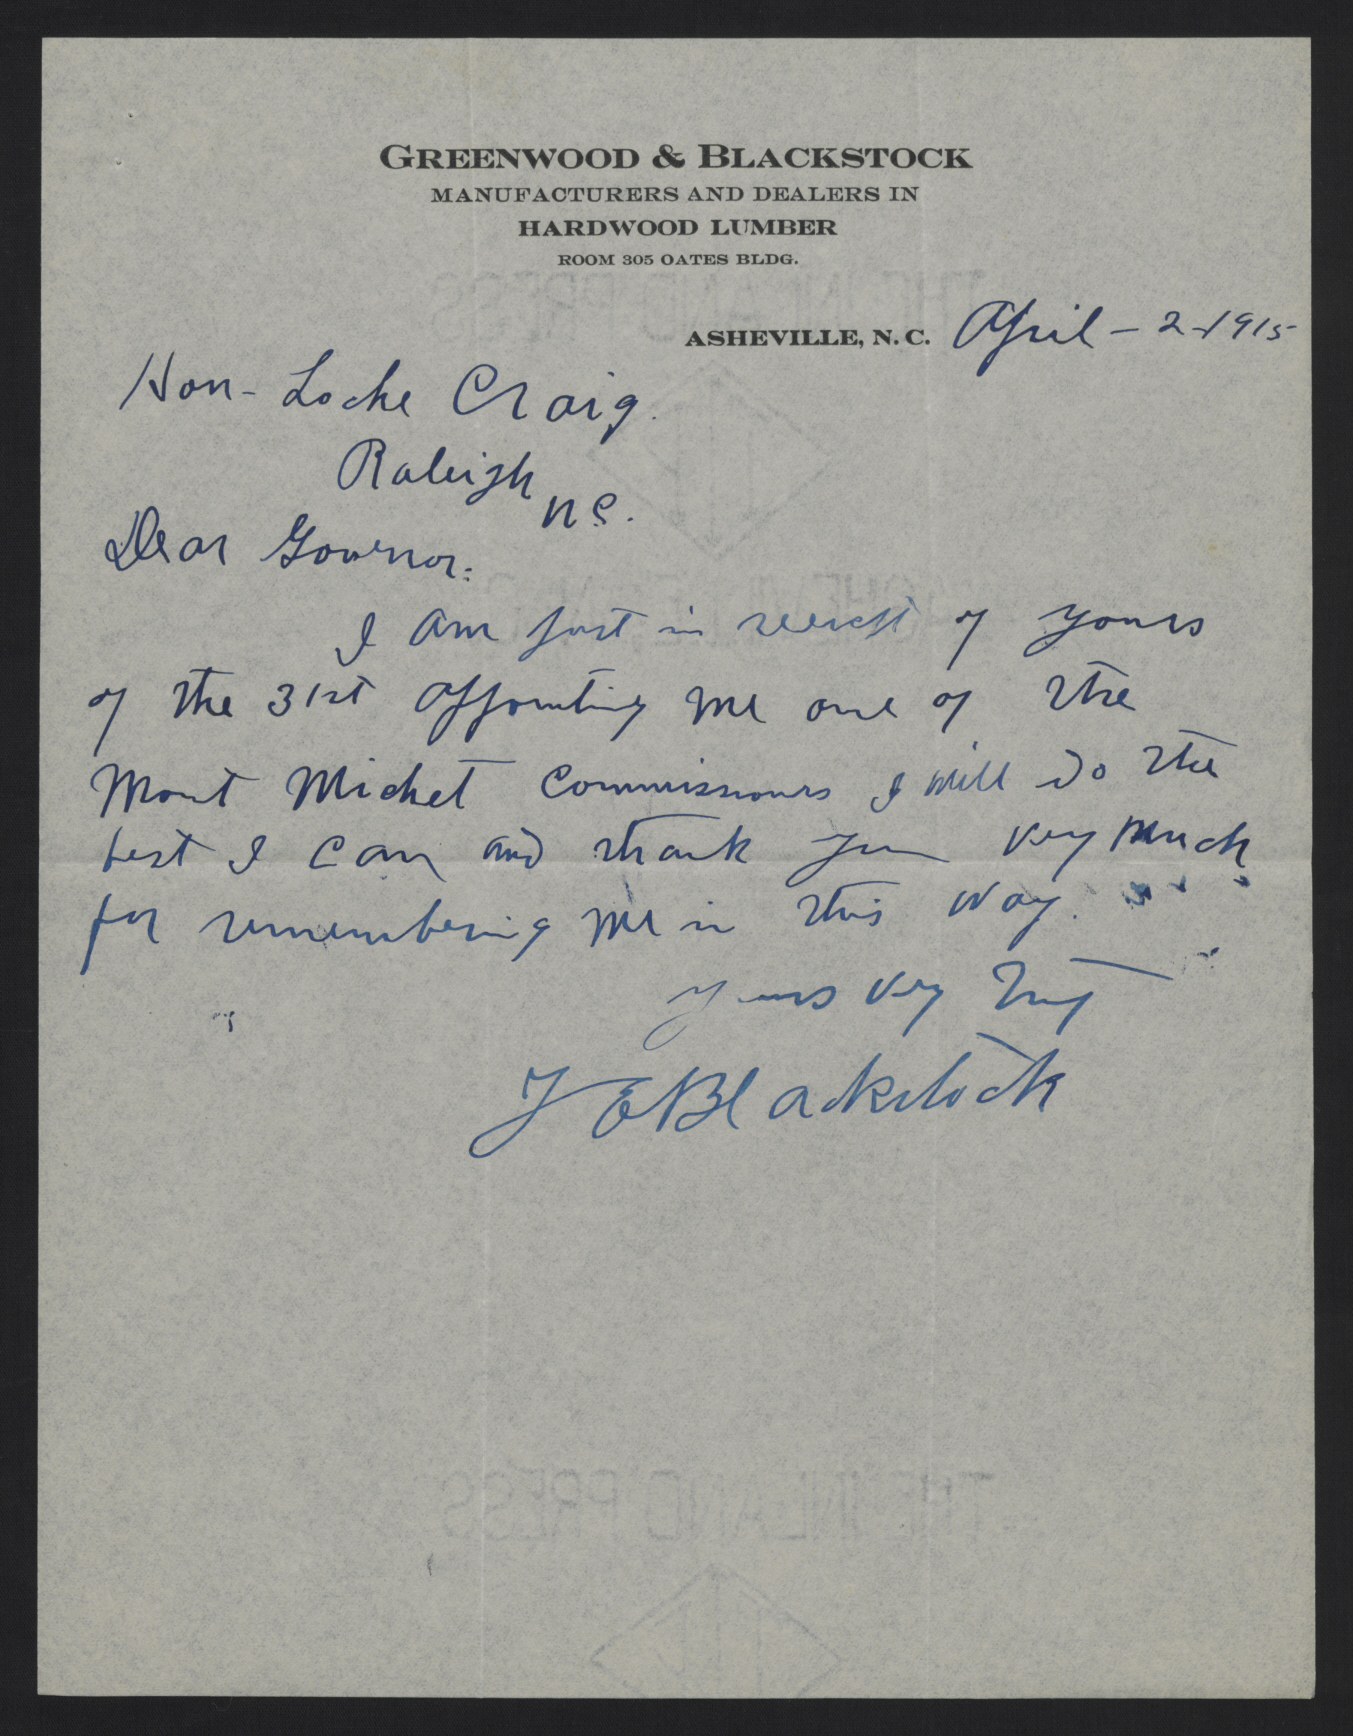 GREENWOOD & BLACKSTOCK
MANUFACTURERS AND DEALERS IN
HARDWOOD LUMBER
ROOM 305 OATES BLDG.
ASHEVILLE, N. C. April - 2 - 1915
Hon - Locke Craig.
Raleigh
N C.
Dear Governor:
I am just in receipt of yours
of the 31st appointing me one of the
Mont Michel Commissioners I will do the
best I can and thank you very much
for remembering me in this way.
Yours very Truly
T E Blackstock
THE INLAND PRESS
ASHEVILLE, N.C.
THE INLAND PRESS